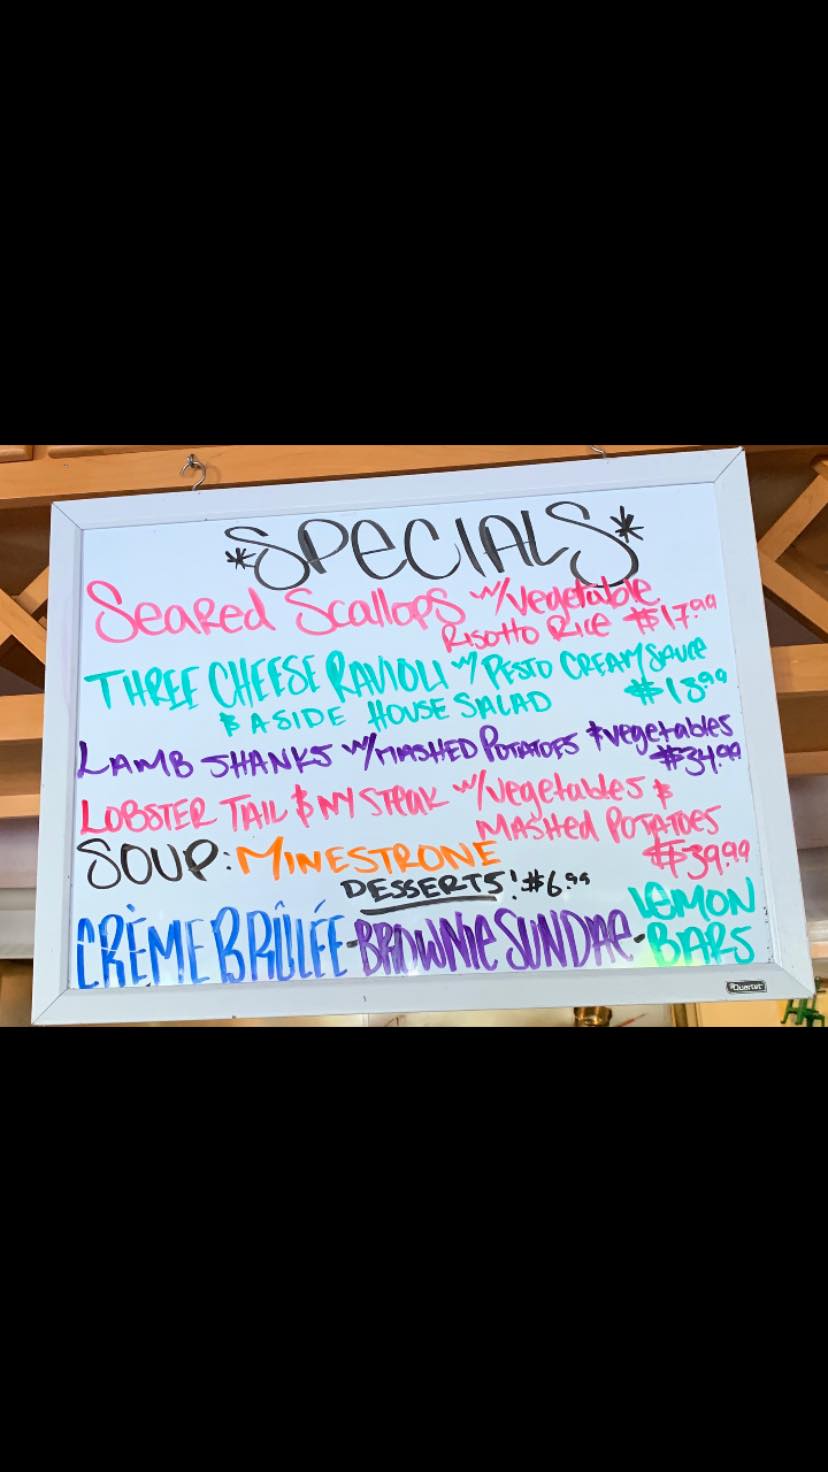 *SPECIALS*
Seared Scallops w/vegetable
Risotto Rice $17.99
THREE CHEESE RAVIOLI w/ PESTO CREAM SAUCE
& A SIDE HOUSE SALAD $18.99
LAMB SHANKS w/MASHED POTATOES & vegetables
$34.99
LOBSTER TAIL & NY STEAK w/vegetables &
MASHED POTATOES
$39.99
SOUP: MINESTRONE
DESSERTS! $6.99
CRÈME BRÛLÉE - BROWNIE SUNDAE - LEMON
BARS
Quartet